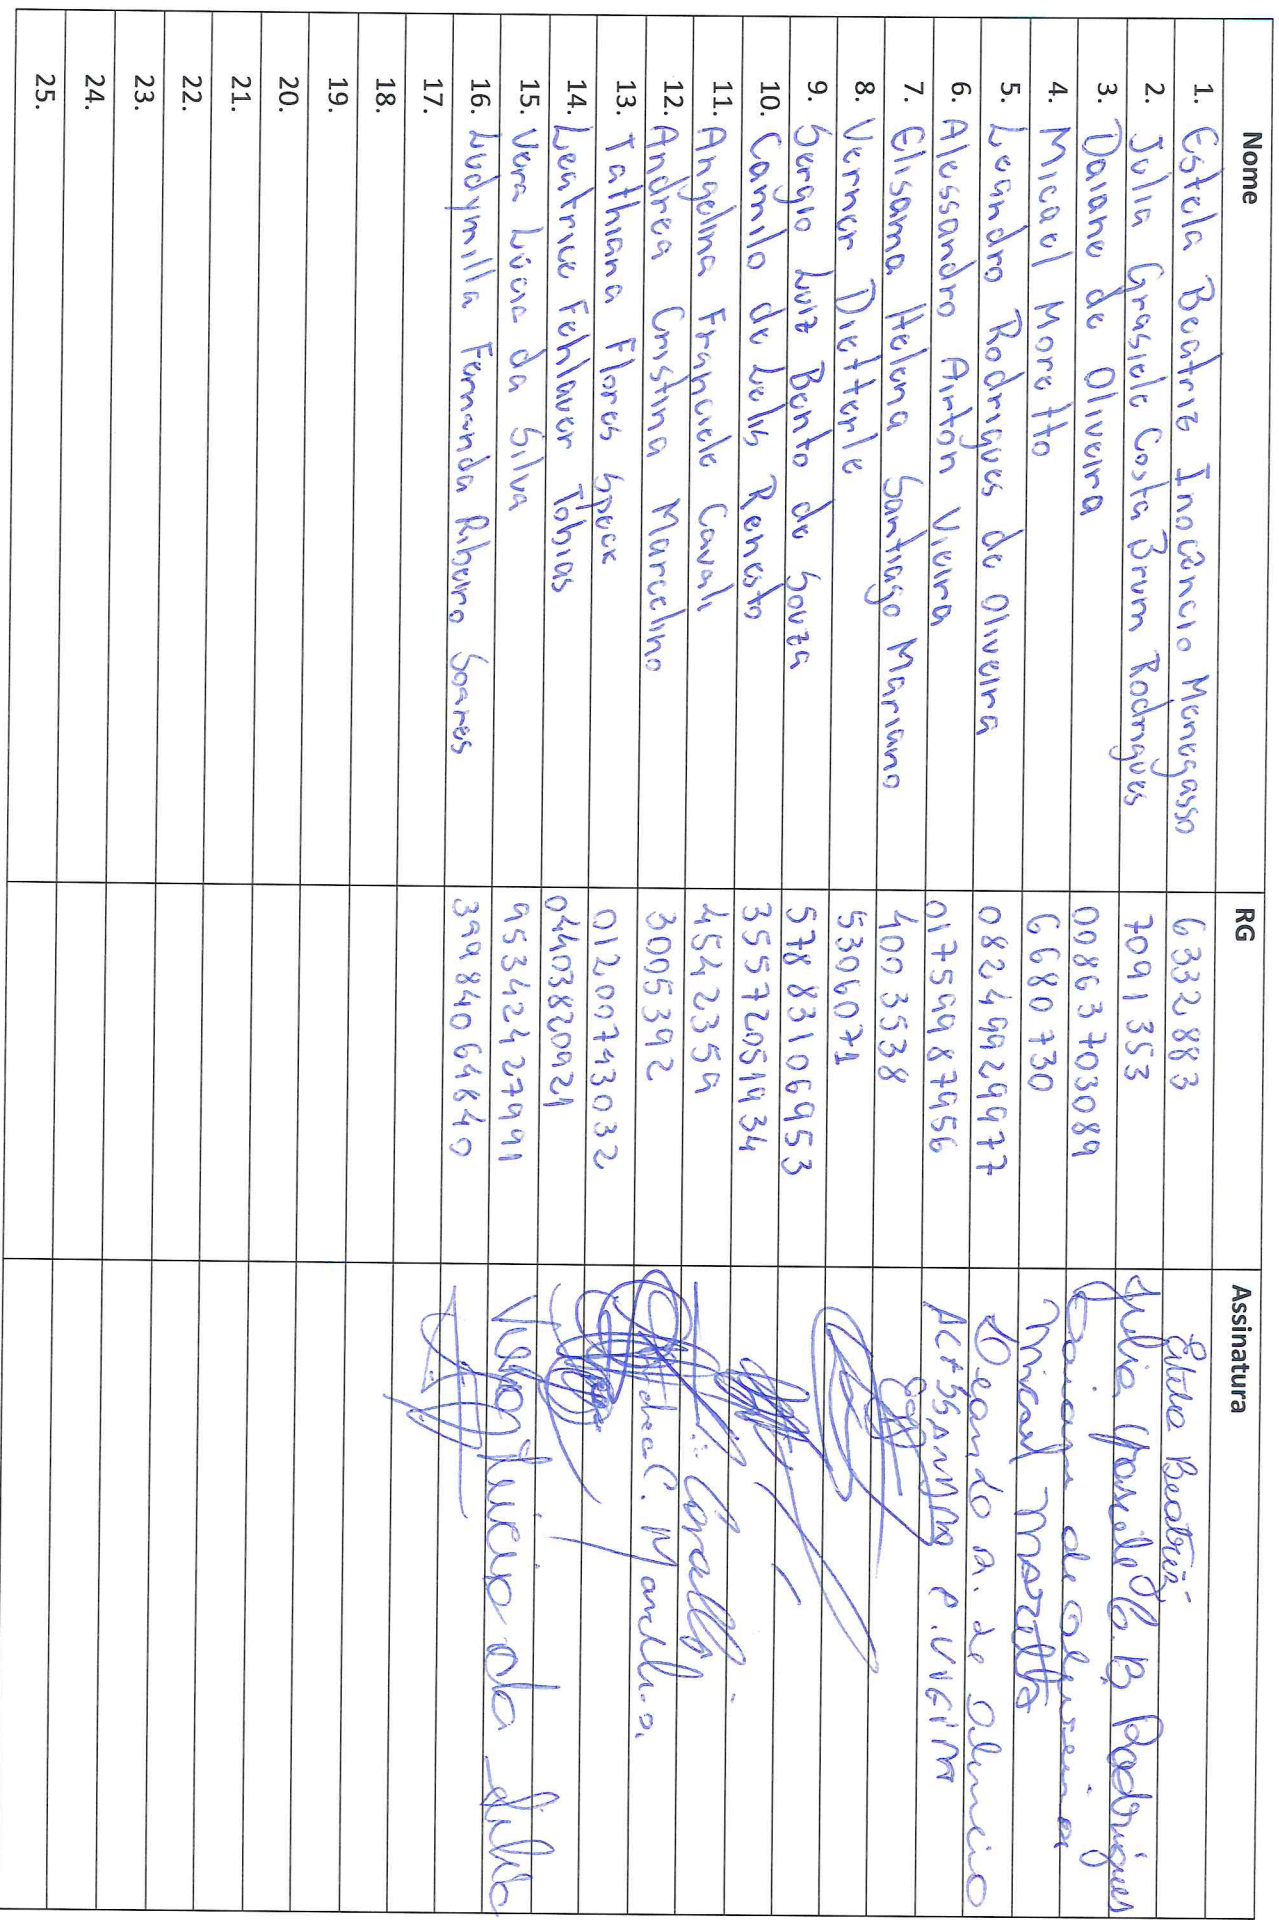 Nome RG Assinatura
1. Estela Beatriz Inocêncio Menegasso 6332883 Estela Beatriz
2. Julia Grasiele Costa Brum Rodrigues 7091353 Julia Grasiele C. B. Rodrigues
3. Daiane de Oliveira 00863703089 Daiane de Oliveira
4. Micael Moretto 6680730 Micael Moretto
5. Leandro Rodrigues de Oliveira 08249929977 Leandro R. de Oliveira
6. Alessandro Airton Vieira 01759987956 Alessandro A. Vieira
7. Elisama Helena Santiago Mariano 4003538
8. Verner Dietterle 5306071
9. Sergio Luiz Bento de Souza 57883106953
10. Camilo de Lelis Renosto 35572051934
11. Angelina Franciele Cavali 4542359 Cavalli
12. Andrea Cristina Marcelino 3005392 Andrea C. Marcelino
13. Tathiana Flores Speck 01200743032
14. Leatrice Fehlauer Tobias 04403820921
15. Vera Lúcia da Silva 95342427991 Vera Lucia da Silva
16. Ludymilla Fernanda Ribeiro Soares 39984064840
17.
18.
19.
20.
21.
22.
23.
24.
25.